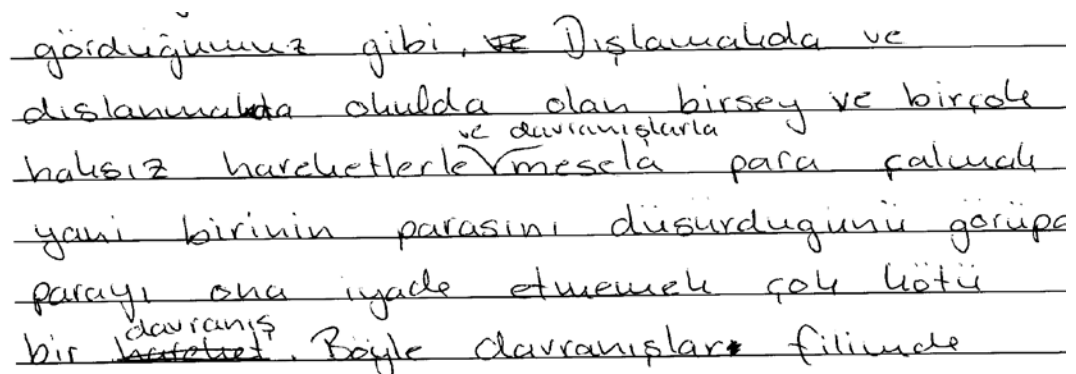 gördüğümüz gibi. Dışlamakda ve
dıslanmakda okulda olan birsey ve birçok
haksız hareketlerle ve davranışlarla mesela para çalmak
yani birinin parasını düsürdugunü görüpo
parayı ona iyade etmemek çok kötü
bir davranış. Böyle davranışlar filimde